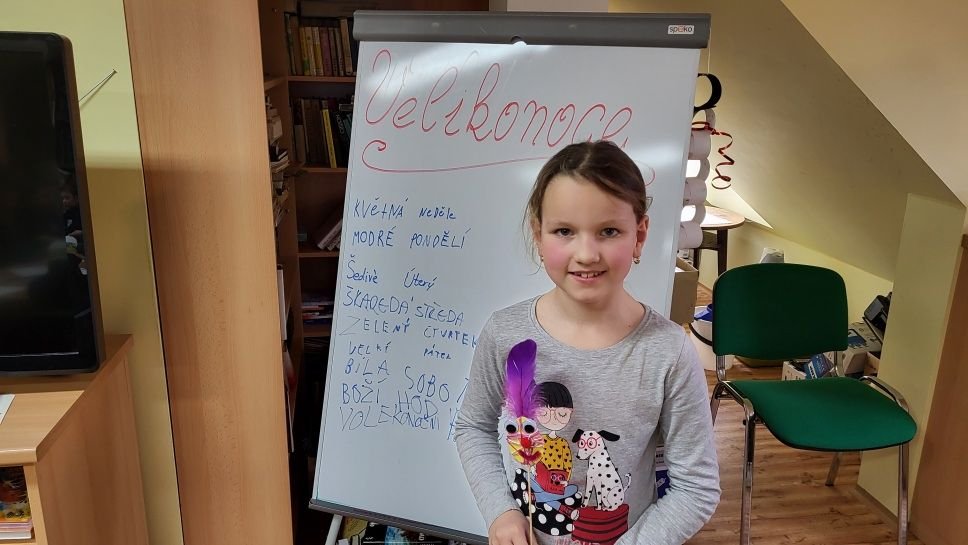 spoko
Velikonoce
KVĚTNÁ NEDĚLE
MODRÉ PONDĚLÍ
Šedivé Úterý
ŠKAREDÁ STŘEDA
ZELENÝ ČTVRTEK
VELKÍ PÁTEK
BÍLÁ SOBO
BOŽÍ HOD
VOLEKONOČNÍ